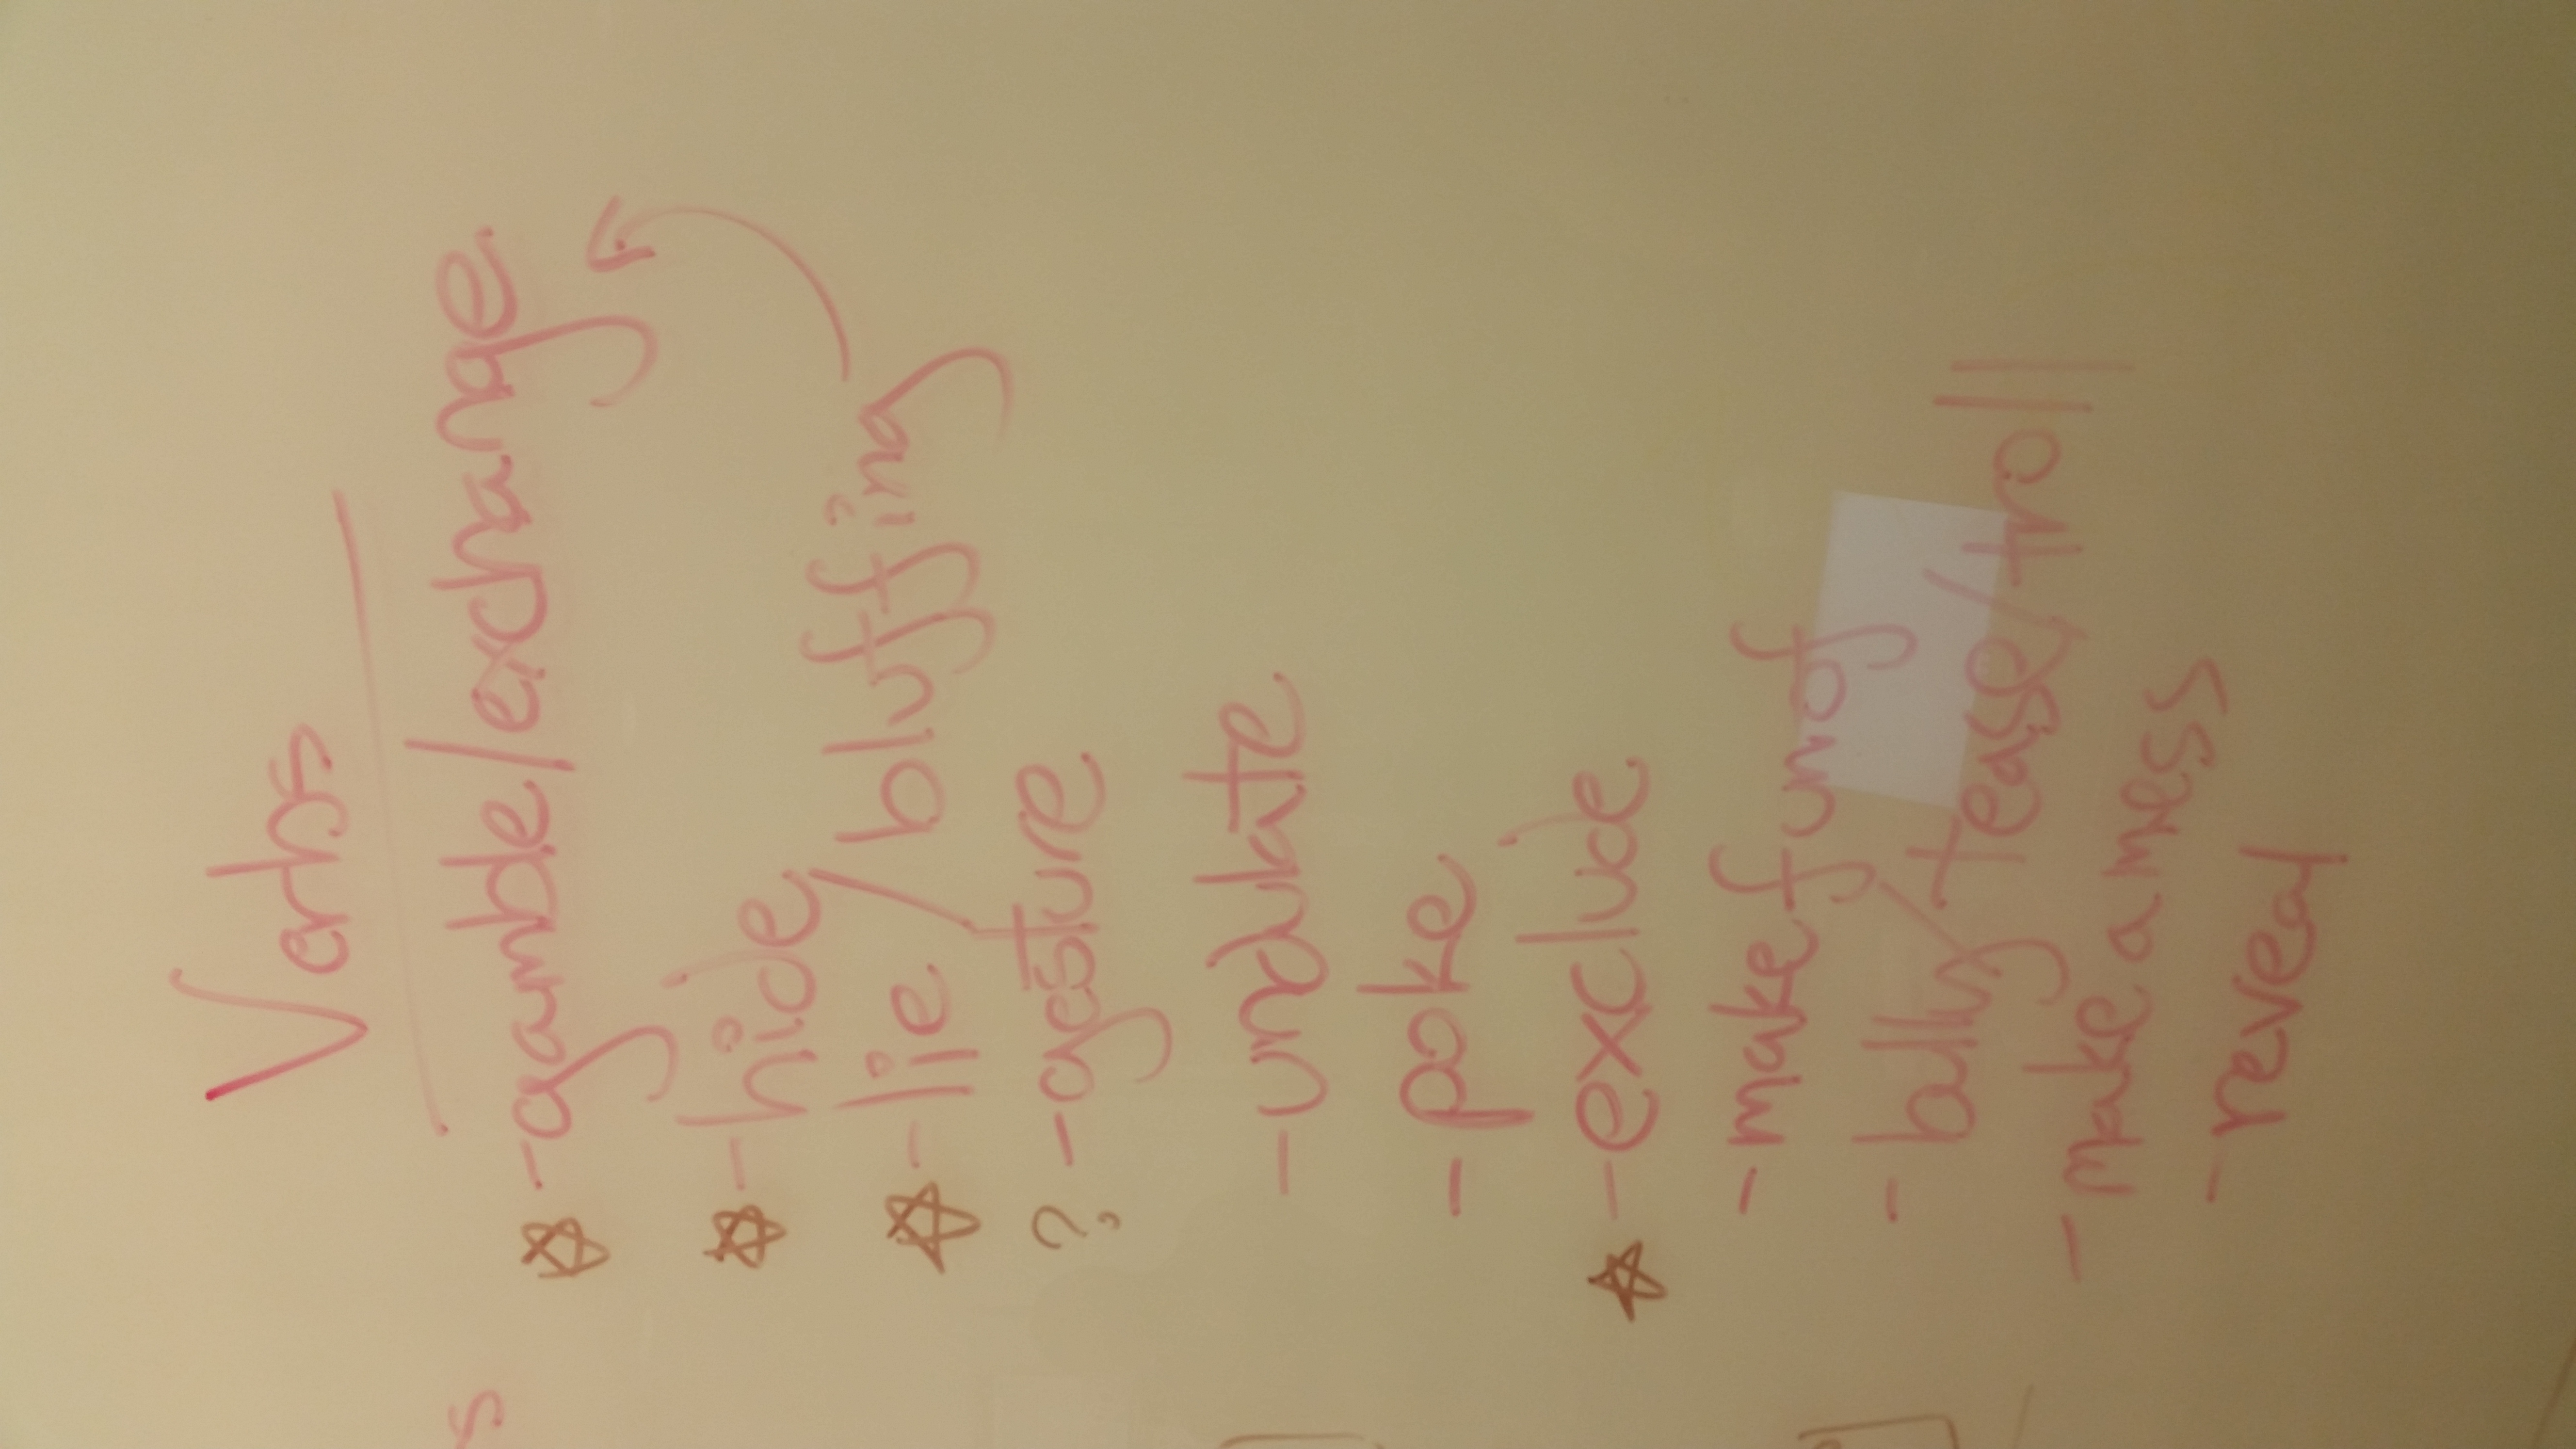 Verbs
s
☆ -gamble/exchange
☆ -hide
☆ -lie/bluffing
? -gesture
-undulate
-poke
☆ -exclude
-make fun of
-bully/tease/troll
-make a mess
-reveal